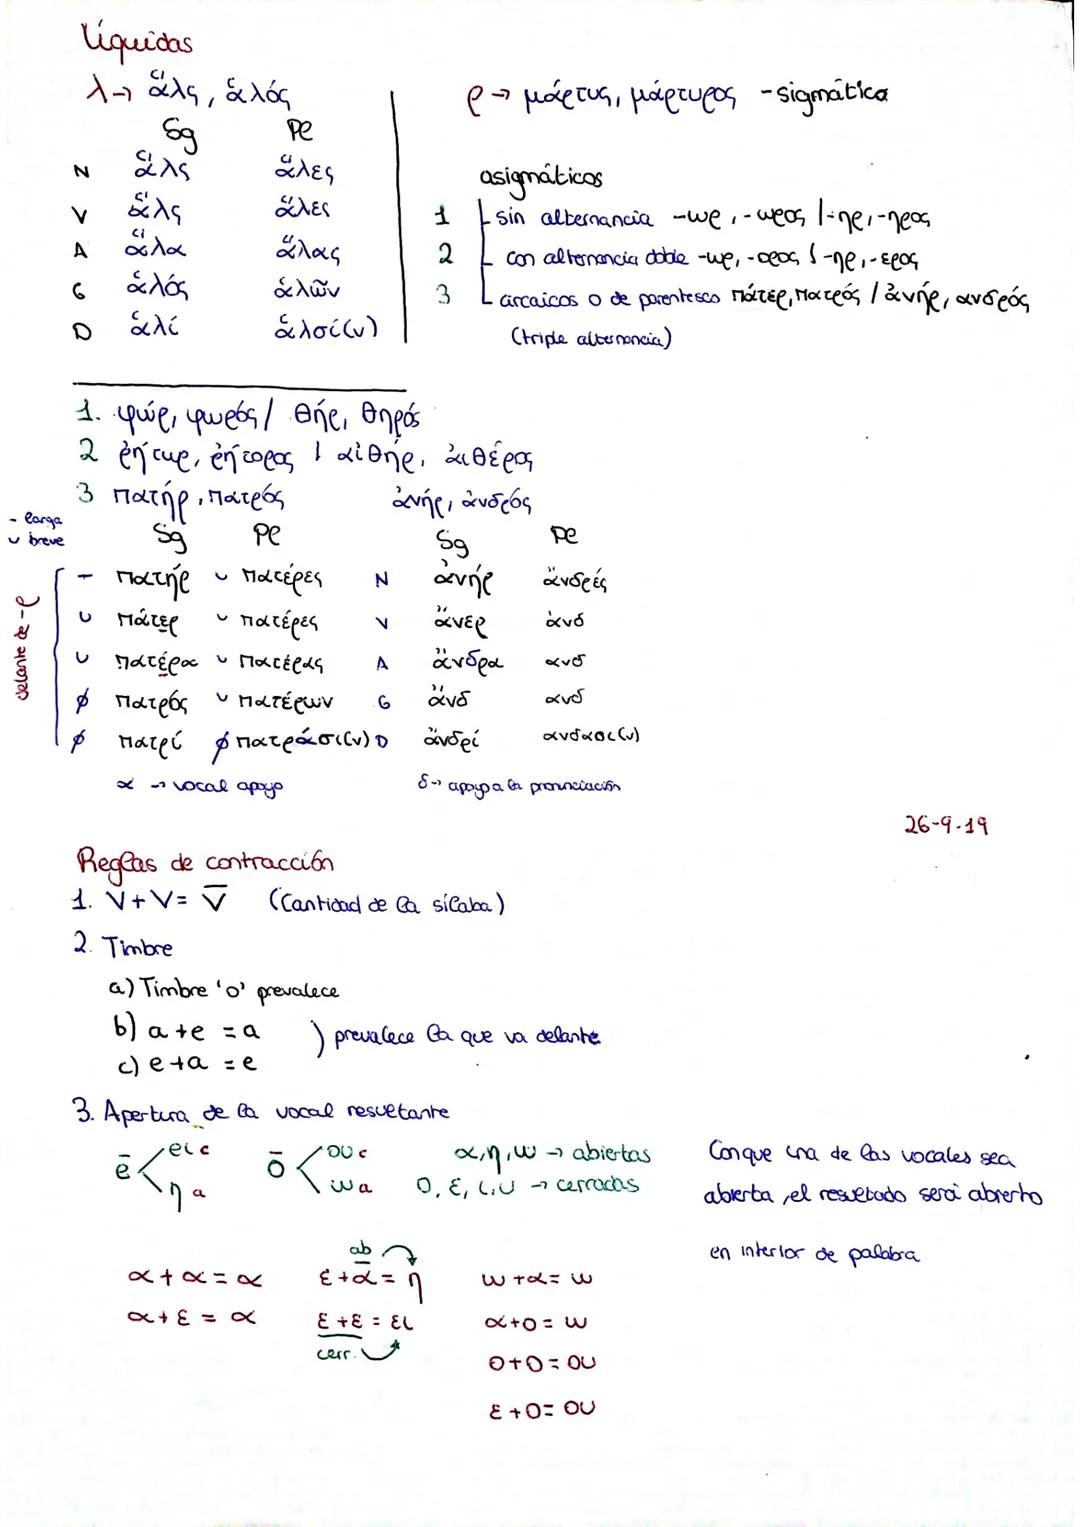 Líquidas
λ→ ἅλς, ἁλός
Sg Pl
N ἅλς ἅλες
V ἅλς ἅλες
A ἅλα ἅλας
G ἁλός ἁλῶν
D ἁλί ἁλσί(ν)
ρ→ μάρτυς, μάρτυρος -sigmática
asigmáticos
1 sin alternancia -ωρ, -ωρος / -ηρ, -ηρος
2 con alternancia doble -ωρ, -ορος / -ηρ, -ερος
3 arcaicos o de parentesco πάτερ, πατρός / ἀνήρ, ανδρός
(triple alternancia)
1. φώρ, φωρός / θήρ, θηρός
2 ῥήτωρ, ῥήτορος / αἰθήρ, αἰθέρος
3 πατήρ, πατρός ἀνήρ, ἀνδρός
- larga
∪ breve
delante de -ρ
Sg Pl Sg Pl
- πατήρ ∪ πατέρες N ἀνήρ ἄνδρές
∪ πάτερ ∪ πατέρες V ἄνερ ἀνδ
∪ πατέρα ∪ πατέρας A ἄνδρα ανδ
φ πατρός ∪ πατέρων G ἄνδ ανδ
φ πατρί φ πατράσι(ν) D ἄνδρί ανδασι(ν)
α → vocal apoyo δ→ apoyo a la pronunciación
26-9-19
Reglas de contracción
1. V+V= V̄ (Cantidad de la sílaba)
2. Timbre
a) Timbre 'o' prevalece
b) a+e = a ) prevalece la que va delante
c) e+a = e
3. Apertura de la vocal resultante
ē < ει c ō < ου c α, η, ω → abiertas
η a ω a ο, ε, ι, υ → cerradas
Conque una de las vocales sea
abierta, el resultado será abierto
en interior de palabra
ab
α+α=α ε+α=η ω+α=ω
α+ε=α ε+ε=ει α+ο=ω
cerr. ο+ο=ου
ε+ο=ου